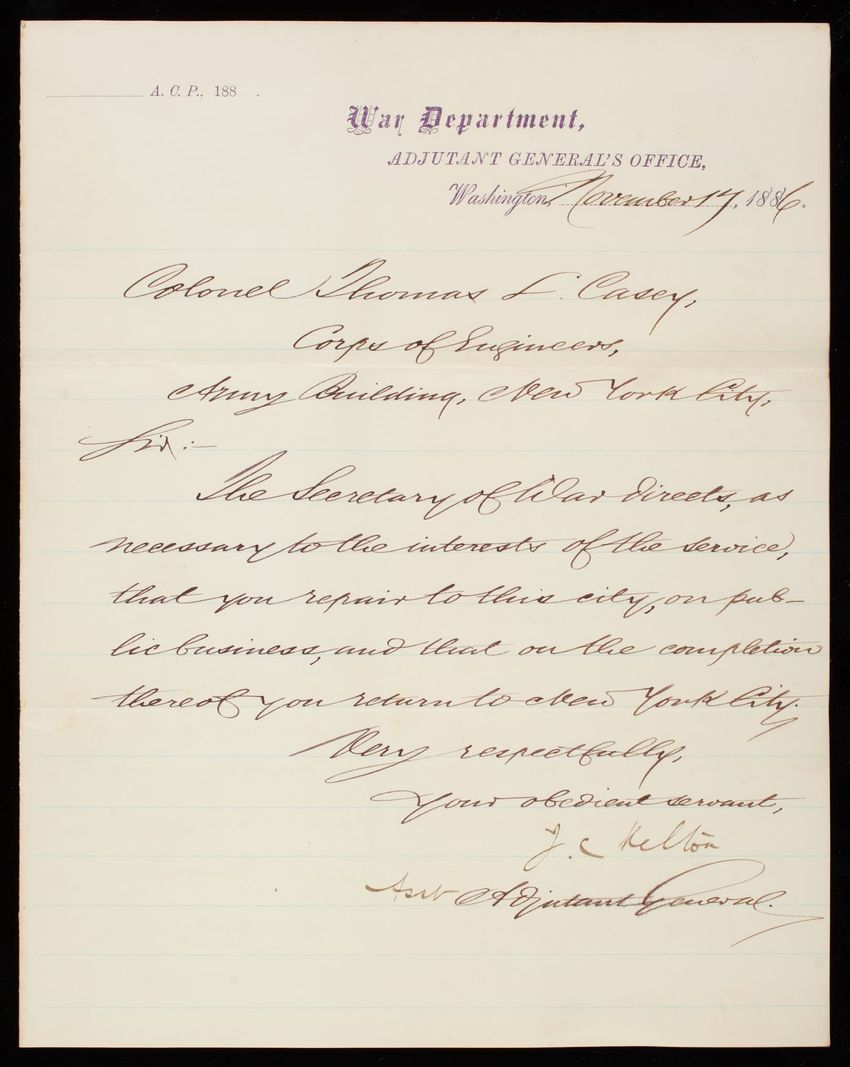 A. C. P., 188 .
War Department,
ADJUTANT GENERAL'S OFFICE,
Washington, November 17, 1886.
Colonel Thomas L. Casey,
Corps of Engineers,
Army Building, New York City,
Sir:—
The Secretary of War directs, as
necessary to the interests of the service,
that you repair to this city, on pub-
lic business, and that on the completion
thereof you return to New York City.
Very respectfully,
Your obedient servant,
J. C Kelton
Asst Adjutant General.